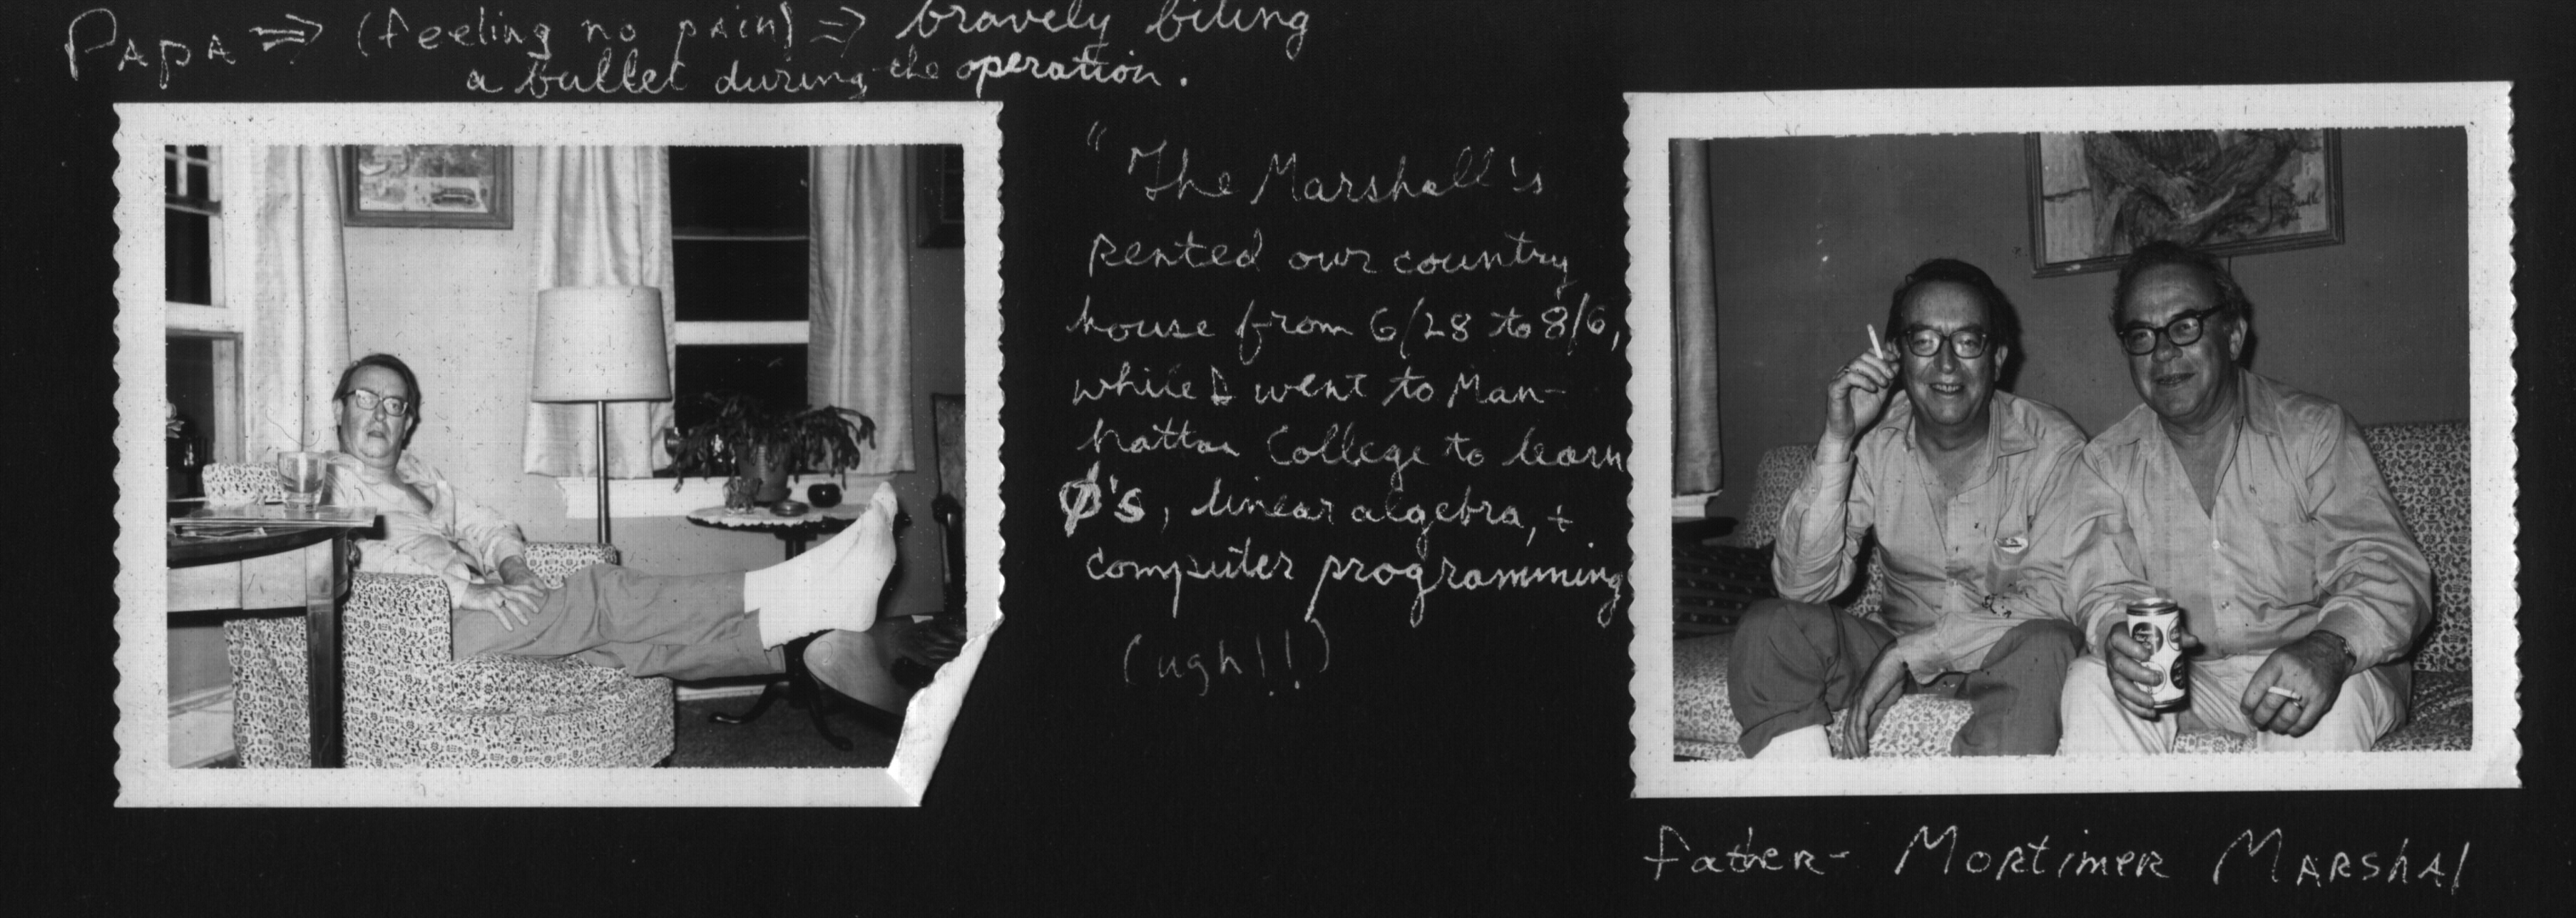 PAPA ⇒ (feeling no pAin) ⇒ bravely biting
a bullet during the operation.
" The Marshall's
Rented our country
house from 6/28 to 8/6,
while I went to Man-
hattan College to learn
Ø's, linear algebra, +
computer programming
(ugh!!)
father - MoRtimeR MARShAl